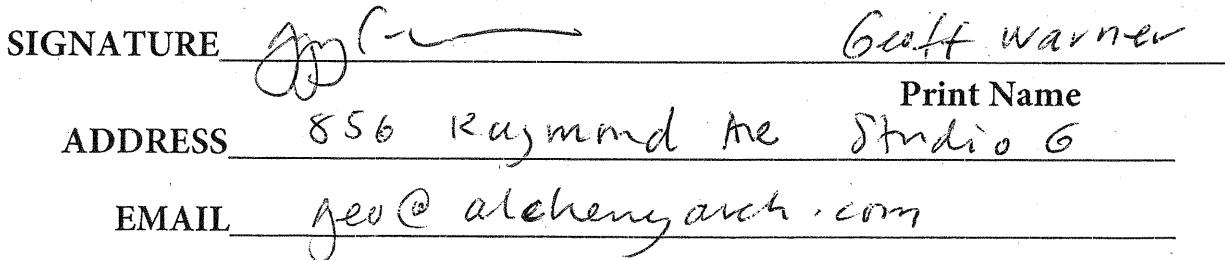 SIGNATURE Geoff Warner
Print Name
ADDRESS 856 Raymond Ave Studio G
EMAIL geo@alchemyarch.com